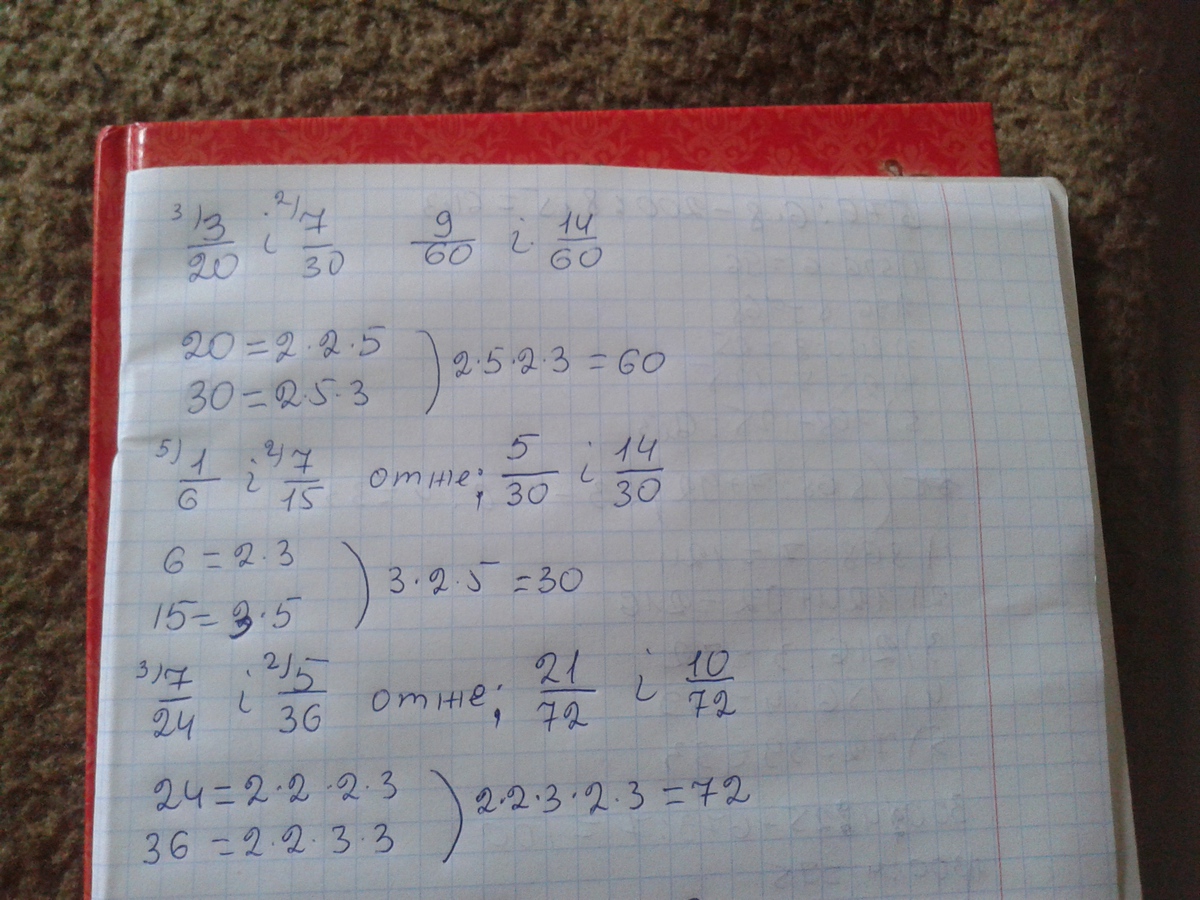 3) 3/20 і 2) 7/30 9/60 і 14/60
20 = 2·2·5
30 = 2·5·3 ) 2·5·2·3 = 60
5) 1/6 і 2) 7/15 отже; 5/30 і 14/30
6 = 2·3
15 = 3·5 ) 3·2·5 = 30
3) 7/24 і 2) 5/36 отже; 21/72 і 10/72
24 = 2·2·2·3
36 = 2·2·3·3 ) 2·2·3·2·3 = 72